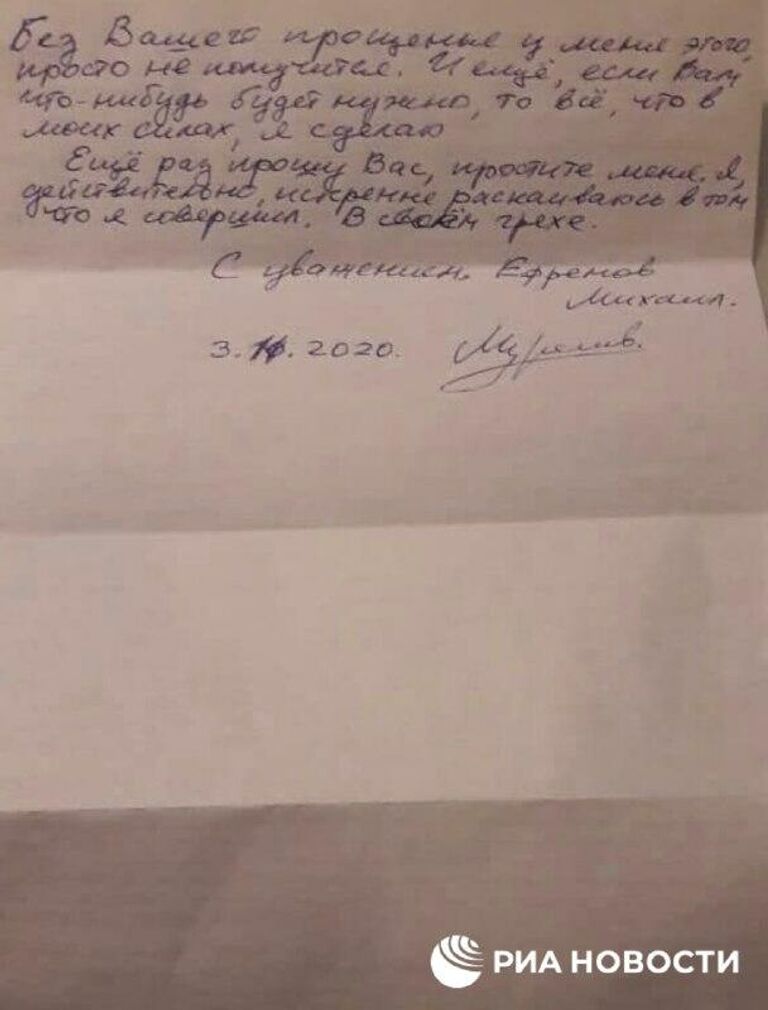 Без Вашего прощенья у меня этого,
просто не получится. И ещё, если Вам
что-нибудь будет нужно, то всё, что в
моих силах, я сделаю
Ещё раз прошу Вас, простите меня. Я,
действительно, искренне раскаиваюсь в том
что я совершил. В своём грехе.
С уважением Ефремов
Михаил.
3. 2020.
РИА НОВОСТИ